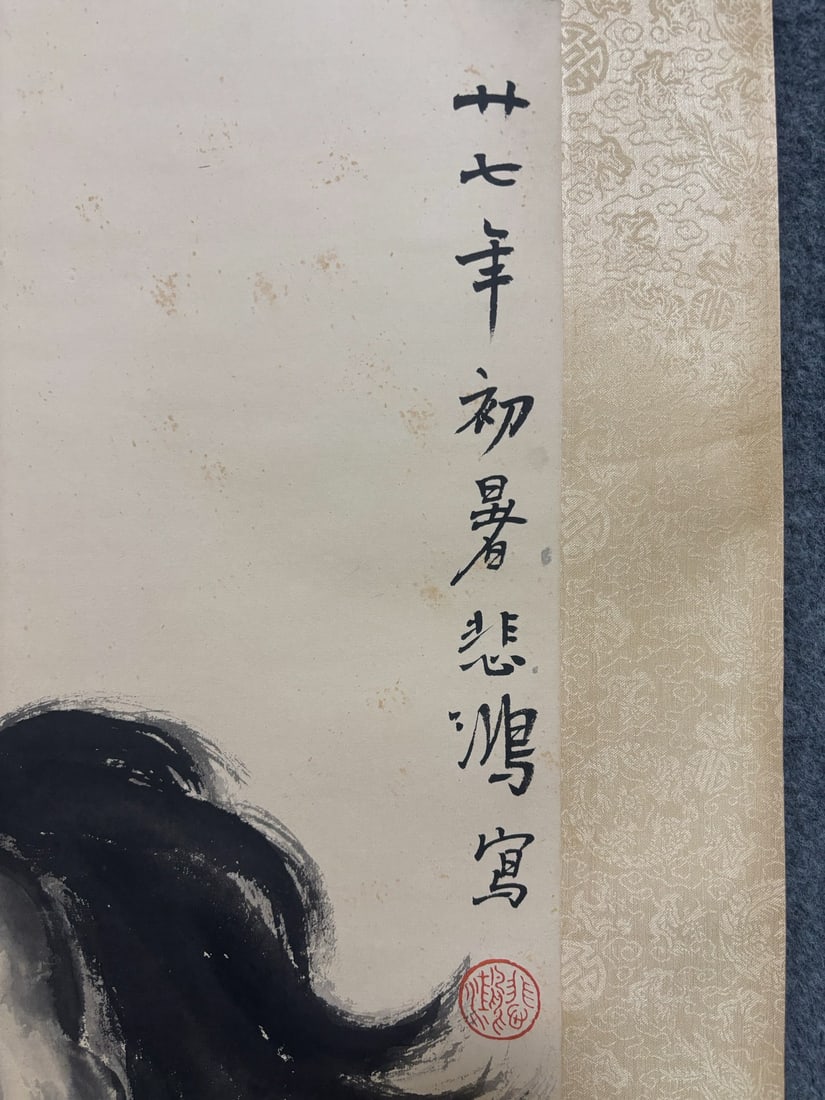 廿七年初暑悲鴻寫